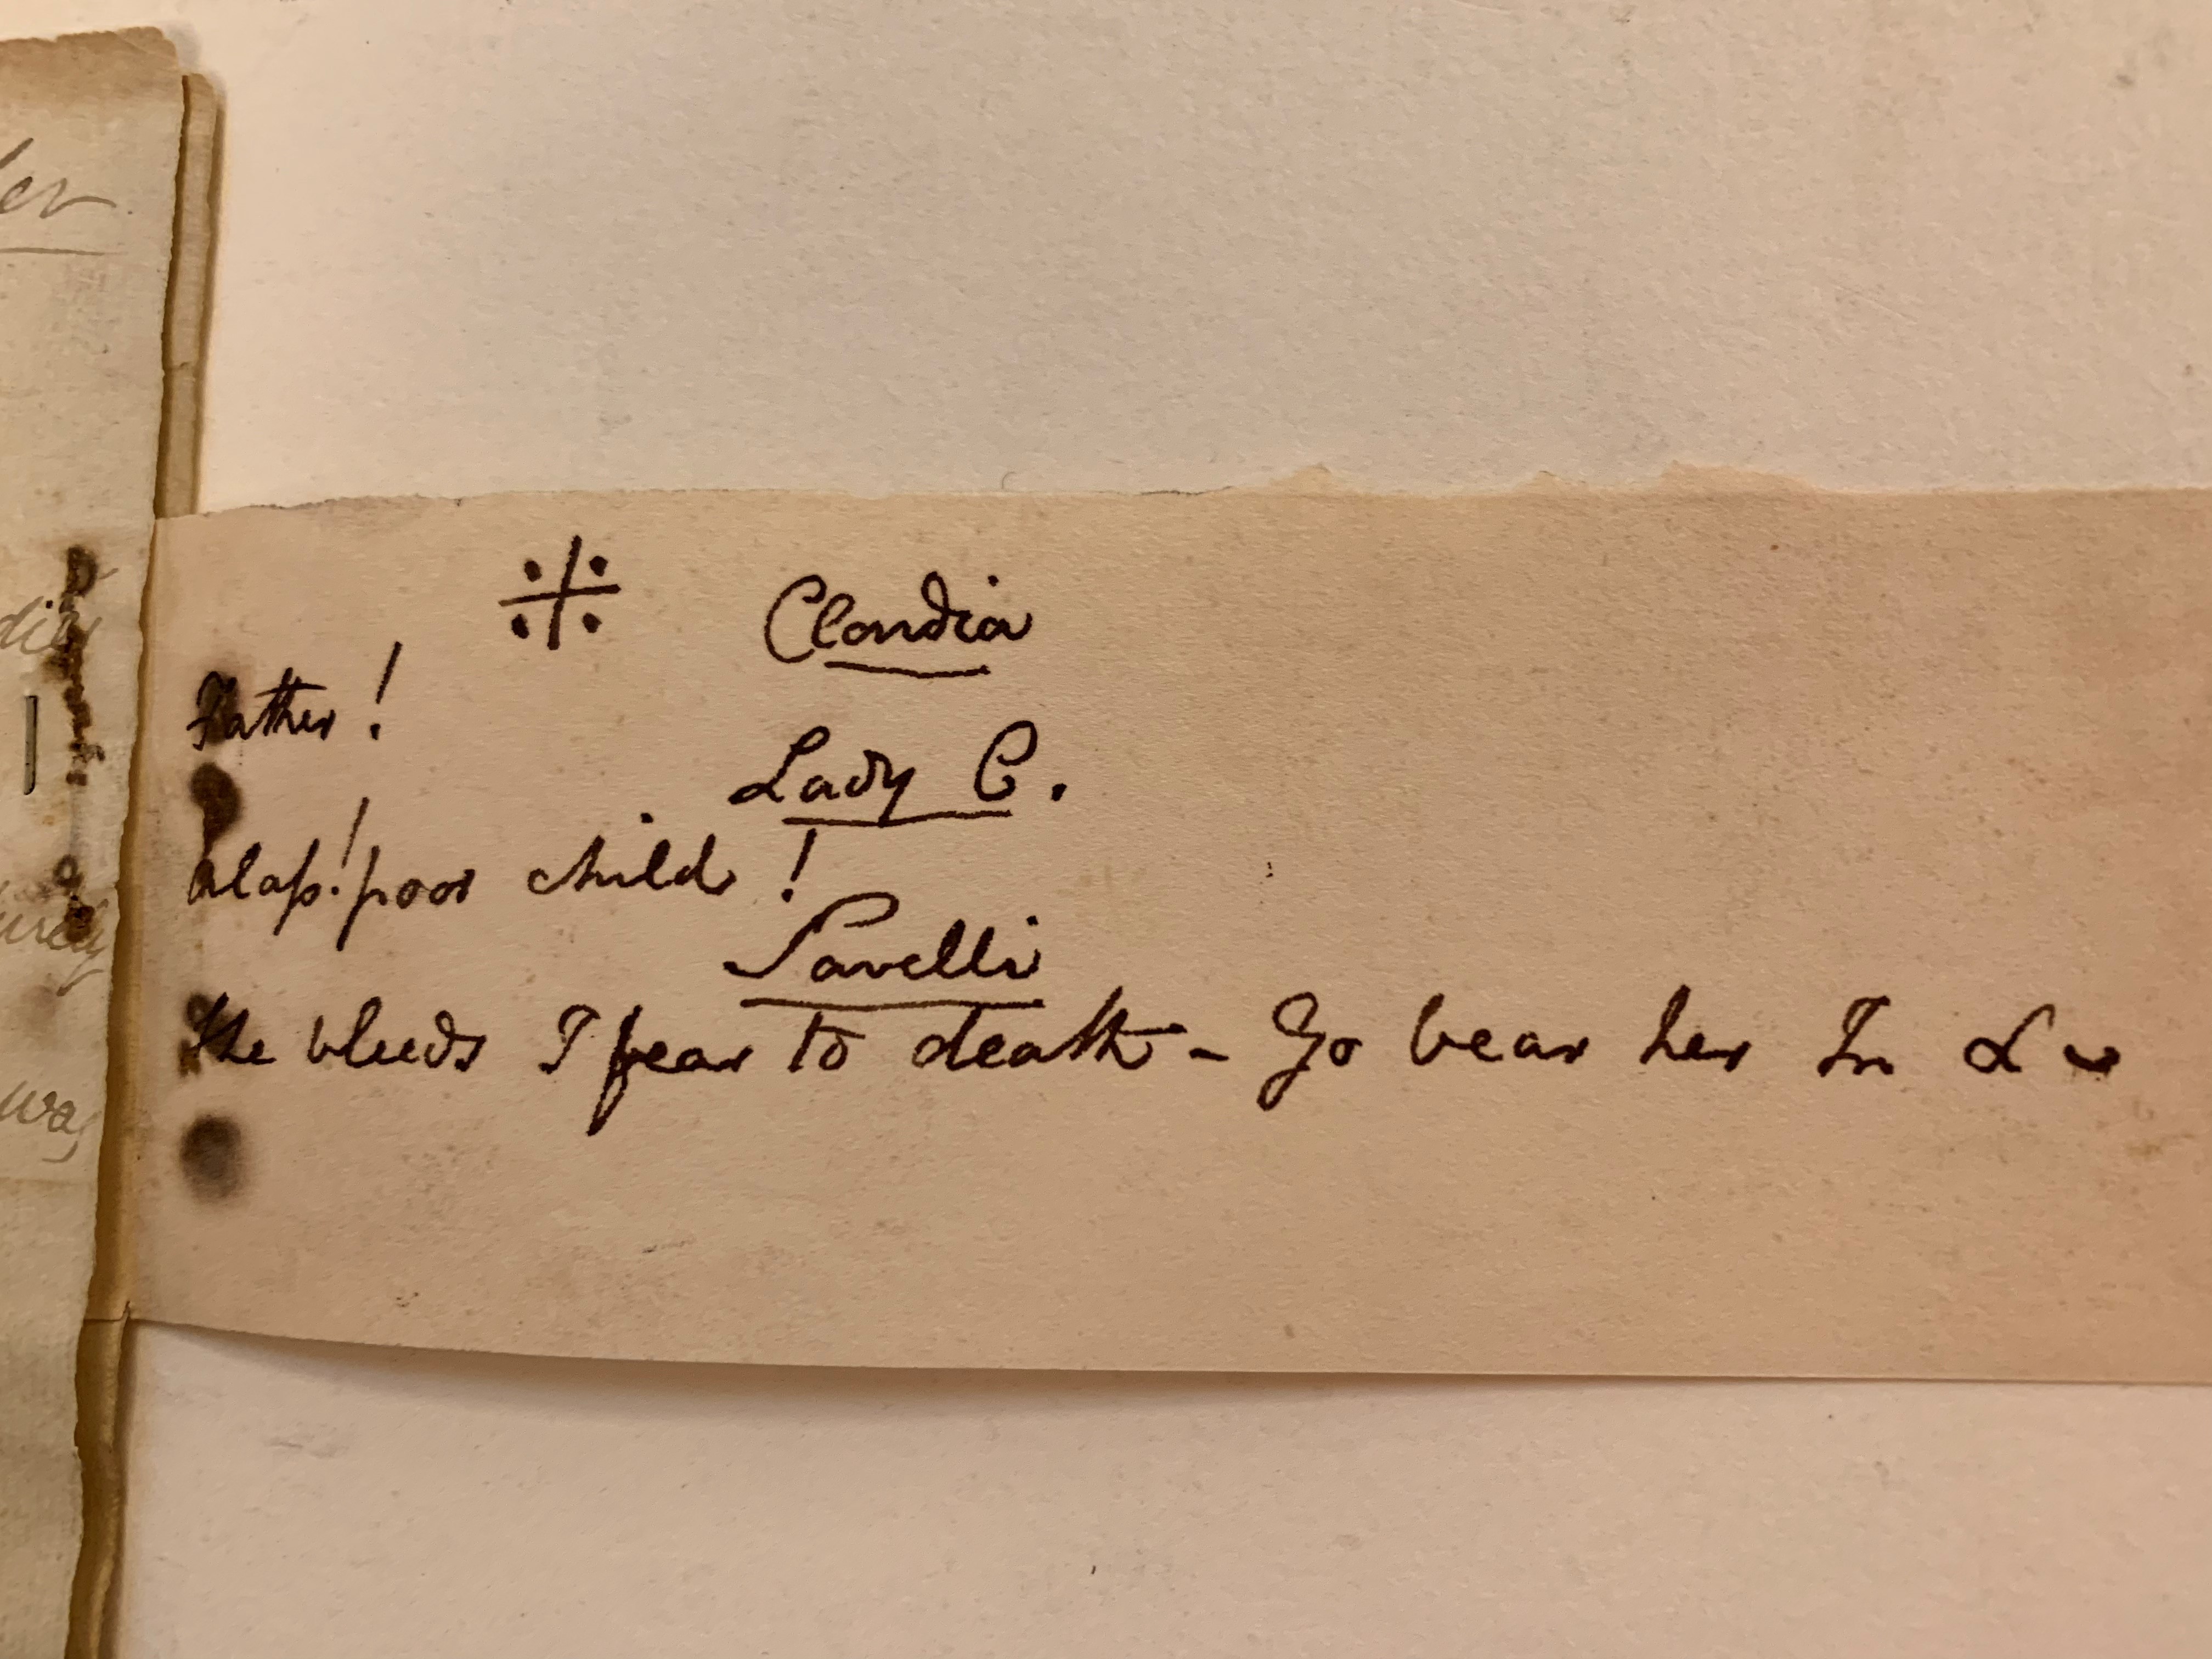 ler
※ Claudia
Father!
Lady C.
Alass! poor child!
Savelli
She bleeds I fear to death - Go bear her In &c